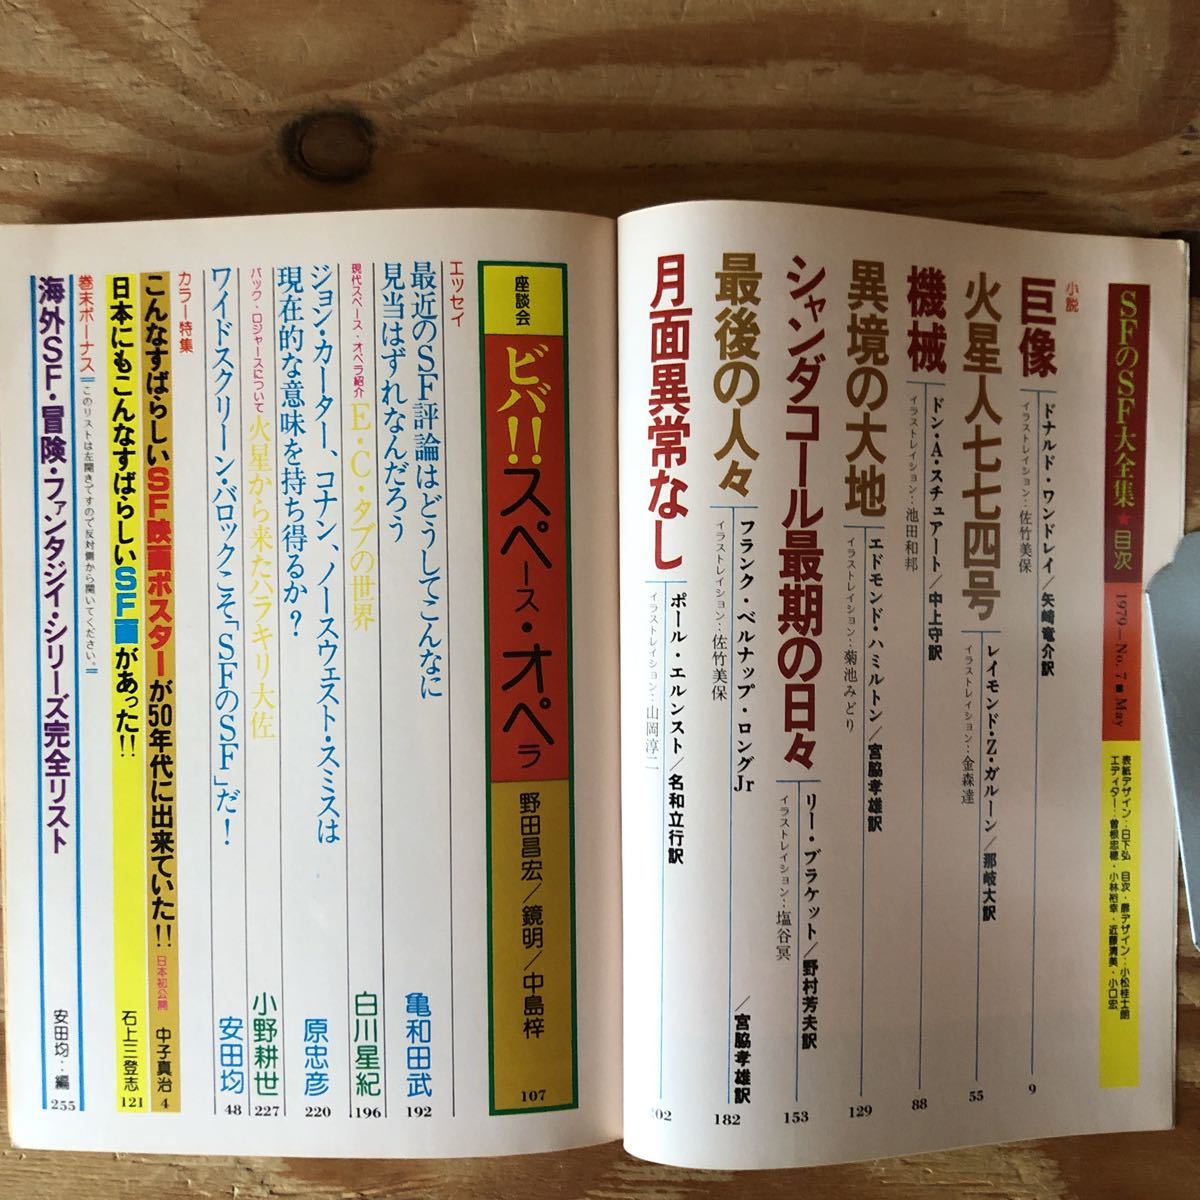 SFのSF大全集★目次
1979—No. 7■May
表紙デザイン：日下弘　目次・扉デザイン：小松桂士朗
エディター：曽根忠穂・小林裕幸・近藤清美・小口宏
小説
巨像
ドナルド・ワンドレイ/矢崎竜介訳
イラストレイション：佐竹美保
9
火星人七七四号
レイモンド・Z・ガルーン/那岐大訳
イラストレイション：金森達
55
機械
ドン・A・スチュアート/中上守訳
イラストレイション：池田和邦
88
異境の大地
エドモンド・ハミルトン/宮脇孝雄訳
イラストレイション：菊池みどり
129
シャンダコール最期の日々
リー・ブラケット/野村芳夫訳
イラストレイション：塩谷冥
153
最後の人々
フランク・ベルナップ・ロングJr
/宮脇孝雄訳
イラストレイション：佐竹美保
182
月面異常なし
ポール・エルンスト/名和立行訳
イラストレイション：山岡淳二
202
座談会
ビバ!!スペース・オペラ
野田昌宏/鏡明/中島梓
107
エッセイ
最近のSF評論はどうしてこんなに
見当はずれなんだろう
亀和田武
192
現代スペース・オペラ紹介
E・C・タブの世界
白川星紀
196
ジョン・カーター、コナン、ノースウェスト・スミスは
現在的な意味を持ち得るか?
原忠彦
220
バック・ロジャースについて
火星から来たハラキリ大佐
小野耕世
227
ワイドスクリーン・バロックこそ「SFのSF」だ!
安田均
48
カラー特集
こんなすばらしいSF映画ポスターが50年代に出来ていた!!
日本初公開
中子真治
4
日本にもこんなすばらしいSF画があった!!
石上三登志
121
巻末ボーナス
このリストは左開きですので反対側から開いてください。
海外SF・冒険・ファンタジイ・シリーズ完全リスト
安田均：編
255